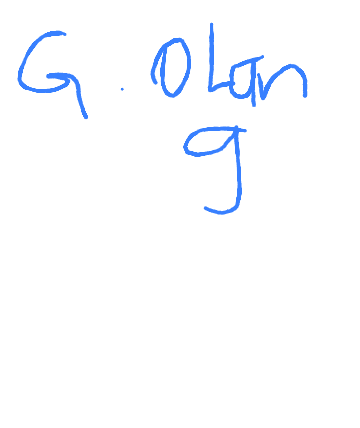 G. Olan
g